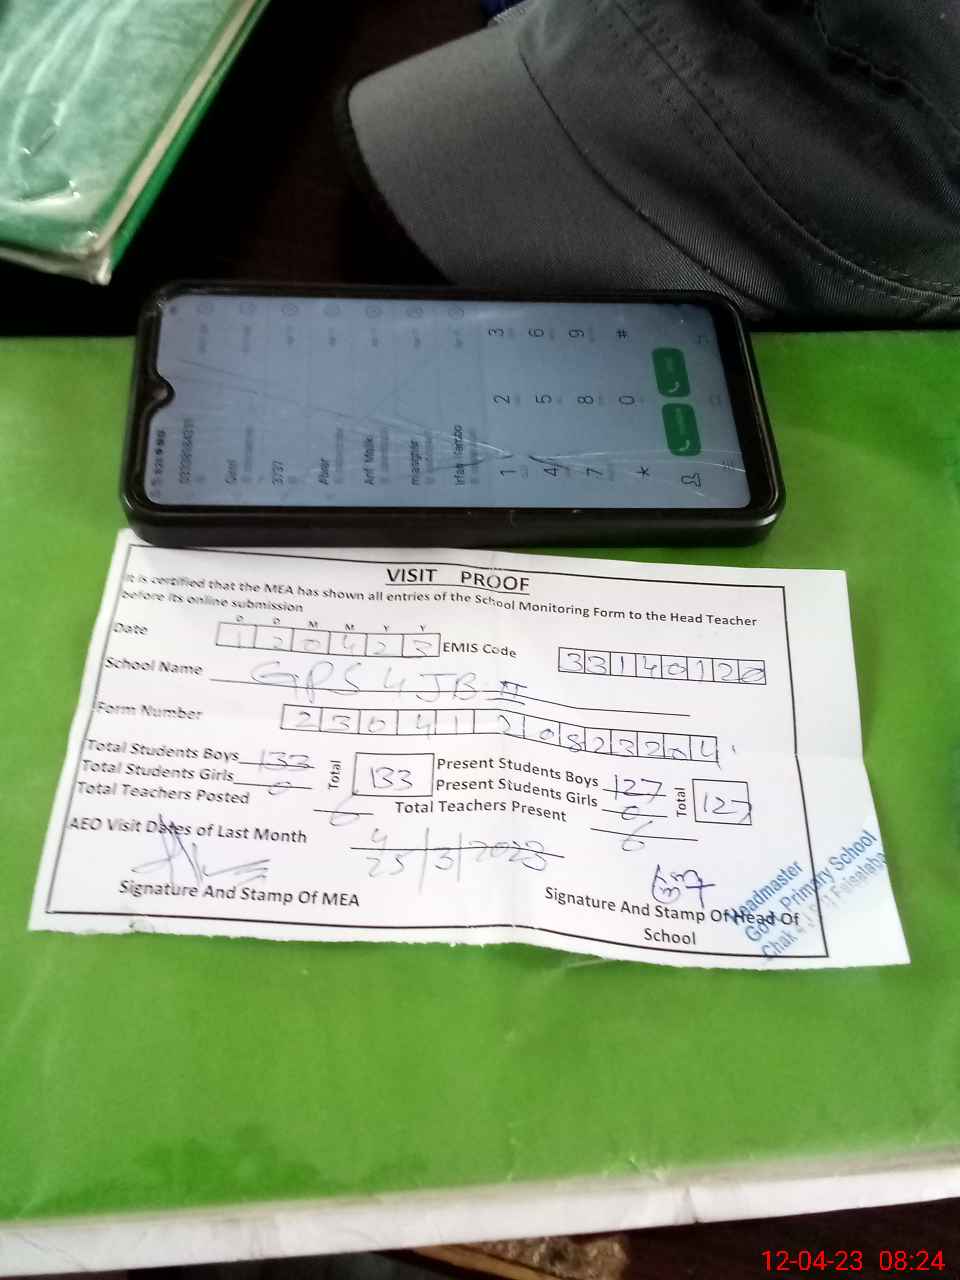 VISIT PROOF
It is certified that the MEA has shown all entries of the School Monitoring Form to the Head Teacher
before its online submission
D D M M Y Y
Date 1 2 0 4 2 3 EMIS Code 3 3 1 4 0 1 2 0
School Name GPS 4 JB II
Form Number 2 3 0 4 1 2 0 8 2 3 2 0 4
Total Students Boys 133 Total 133 Present Students Boys 127 Total 127
Total Students Girls 0 Present Students Girls 0
Total Teachers Posted 6 Total Teachers Present 6
AEO Visit Dates of Last Month 4
25/3/2023
Signature And Stamp Of MEA
Signature And Stamp Of Head Of
School
Headmaster
Govt. Primary School
Chak Faisalabad
3737
Arif Malik
1 2 3
4 5 6
7 8 9
* 0 #
12-04-23 08:24